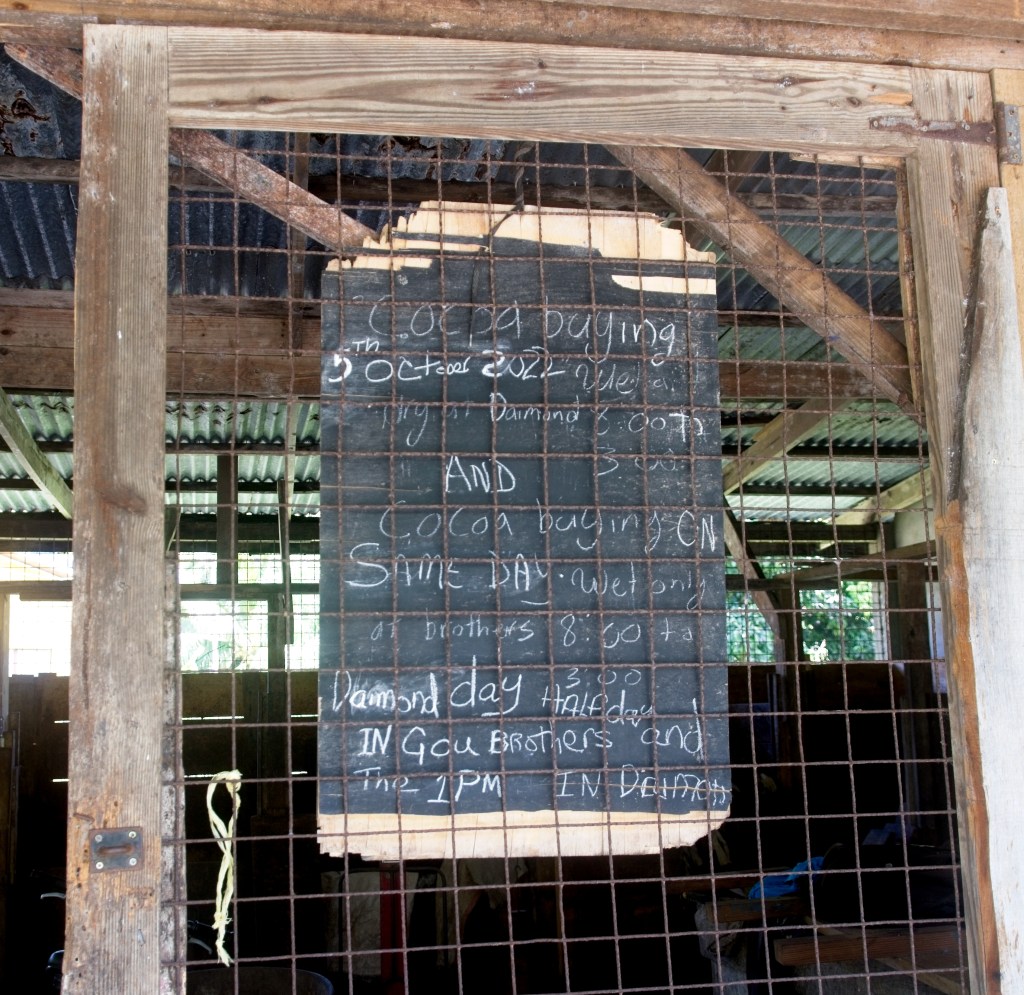 Cocoa buying
5TH October 2022 Wet a
Dry at Daimond 8:00 To
3:00
AND
Cocoa buying ON
SAME DAY. Wet only
at brothers 8:00 to
3:00
Daimond day HALF day
IN GOU BROthers and
The 1PM IN